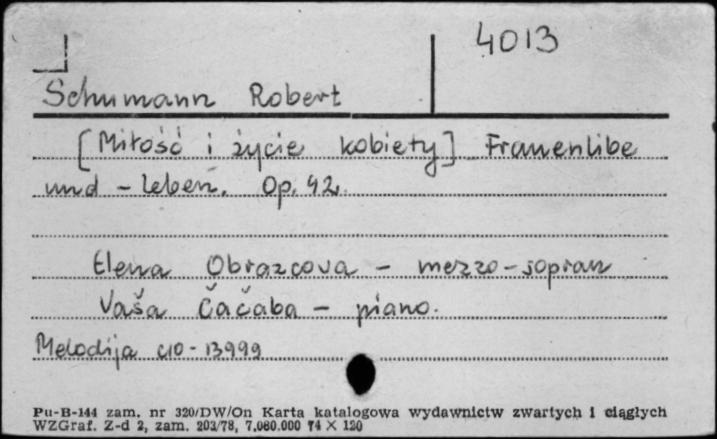 4013
Schumann Robert
[Miłość i życie kobiety] Frauenlibe
und - leben. Op. 42.
Elena Obrazcova - mezzo-sopran
Vaša Čačaba - piano.
Melodija C10-13999
Pu-B-144 zam. nr 320/DW/On Karta katalogowa wydawnictw zwartych i ciągłych
WZGraf. Z-d 2, zam. 203/78, 7.060.000 74 X 120